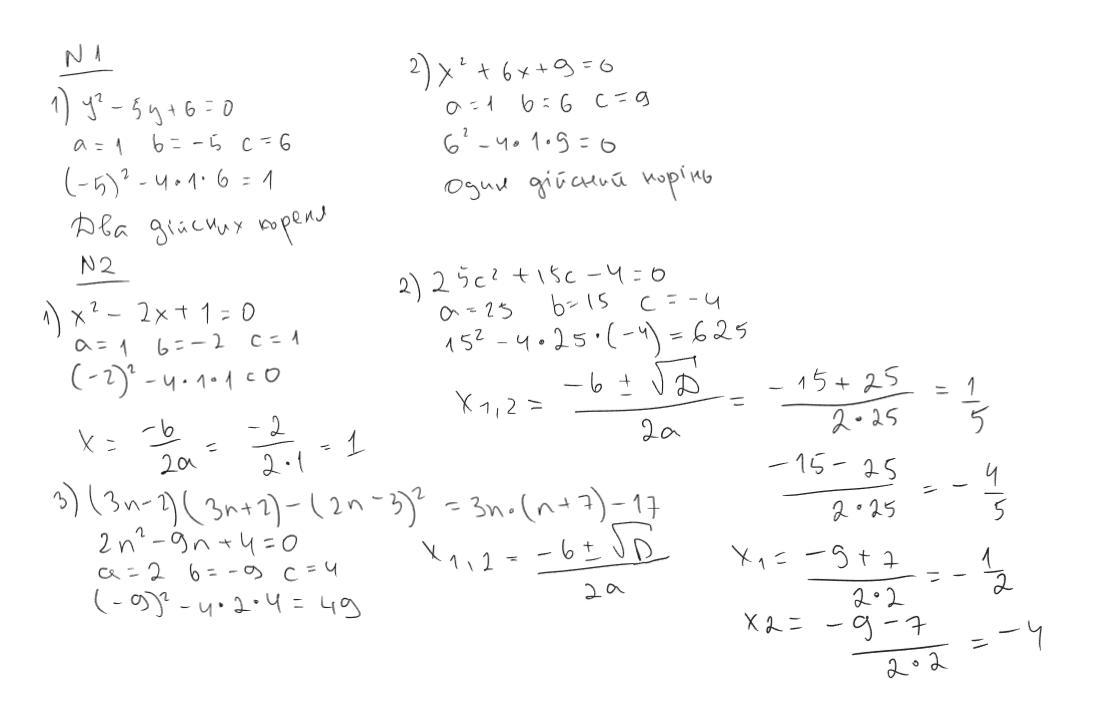 N 1
1) y² - 5y + 6 = 0
a = 1 b = -5 c = 6
(-5)² - 4 • 1 • 6 = 1
Два дійсних кореня
2) x² + 6x + 9 = 0
a = 1 b = 6 c = 9
6² - 4 • 1 • 9 = 0
Один дійсний корінь
N2
1) x² - 2x + 1 = 0
a = 1 b = -2 c = 1
(-2)² - 4 • 1 • 1 = 0
x = -b/2a = -2/2•1 = 1
2) 25c² + 15c - 4 = 0
a = 25 b = 15 c = -4
15² - 4 • 25 • (-4) = 625
x1,2 = -b ± √D/2a = -15 + 25/2•25 = 1/5
-15 - 25/2•25 = -4/5
3) (3n-2)(3n+2) - (2n-3)² = 3n•(n+7) - 17
2n² - 9n + 4 = 0
a = 2 b = -9 c = 4
(-9)² - 4 • 2 • 4 = 49
x1,2 = -b ± √D/2a
x1 = -9 + 7/2•2 = -1/2
x2 = -9 - 7/2•2 = -4